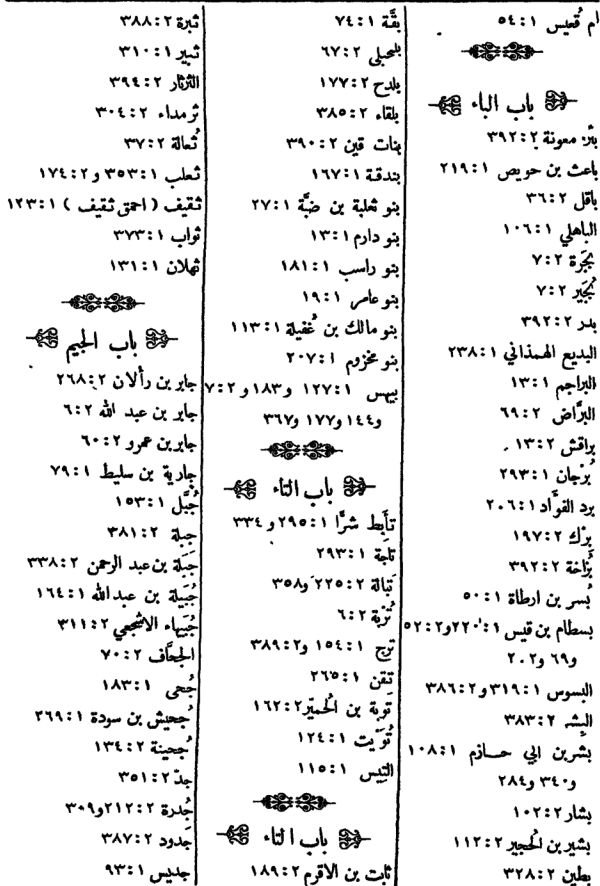 ام قُعيس ١:٥٤
باب الباء
بئر معونة ٢:٣٩٢
باعث بن حويص ١:٢١٩
باقل ٢:٣٦
الباهلي ١:١٠٦
بُجَرة ٢:٧
بُجَير ٢:٧
بدر ٢:٣٩٢
البديع الهمذاني ١:٢٣٨
البراجم ١:١٣
البرَّاض ٢:٦٩
براقش ٢:١٣
بُرْجان ١:٢٩٣
برد الفؤاد ١:٢٠٦
بِرْك ٢:١٩٧
بُزاخة ٢:٣٩٢
بُسر بن ارطاة ١:٥٠
بسطام بن قيس ١:٢٢٠ و٢:٥٢
و٦٩ و٢٠٢
البسوس ١:٣١٩ و٢:٣٨٦
البِشر ٢:٣٨٣
بشر بن ابي حازم ١:١٠٨
و٣٤٠ و٢٨٤
بشار ٢:١٠٢
بشير بن الحجير ٢:١١٢
بطين ٢:٣٢٨
بقَّة ١:٧٤
بلحبلى ٢:٦٧
بلدح ٢:١٧٧
بلقاء ٢:٣٨٥
بنات قين ٢:٣٩٠
بندقة ١:١٦٧
بنو ثعلبة بن ضبَّة ١:٢٧
بنو دارم ١:١٣
بنو راسب ١:١٨١
بنو عامر ١:١٩
بنو مالك بن غُفيلة ١:١١٣
بنو مخزوم ١:٢٠٧
بيهس ١:١٢٧ و١٨٣ و٢:٧
و١٤٤ و١٧٧ و٣٦٧
باب التاء
تأبط شرًّا ١:٢٩٥ و٣٣٤
تاجة ١:٢٩٣
تَبالة ٢:٢٢٥ و٣٥٨
تُرَبة ٢:٦
ترج ١:١٥٤ و٢:٣٨٩
تقن ١:٢٦٥
تَوبة بن الحُميّر ٢:١٦٢
تُوَيت ١:١٢٤
التيس ١:١١٥
باب الثاء
ثابت بن الاقرم ٢:١٨٩
ثبرة ٢:٣٨٨
ثبير ١:٣١٠
الثرثار ٢:٣٩٤
ثرمداء ٢:٣٠٤
ثُعالة ٢:٣٧
ثعلب ١:٣٥٣ و٢:١٧٤
ثقيف ( احمق ثقيف ) ١:١٢٣
ثواب ١:٣٧٣
ثهلان ١:١٣١
باب الجيم
جابر بن رألان ٢:٢٦٨
جابر بن عبد الله ٢:٦
جابر بن عمرو ٢:٦٠
جارية بن سليط ١:٧٩
جُبَّل ١:١٥٣
جبلة ٢:٣٨١
جَبَلة بن عبد الرحمن ٢:٣٣٨
جُبَيلة بن عبد الله ١:١٦٤
جُبَيهاء الاشجعي ٢:٣١١
الجحَّاف ٢:٧٠
جُحى ١:١٨٣
جُحيش بن سودة ١:٢٦٩
جُحينة ٢:١٣٤
جدّ ٢:٣٥١
جُدرة ٢:٢١٢ و٣٠٩
جَدود ٢:٣٨٧
جديس ١:٩٣